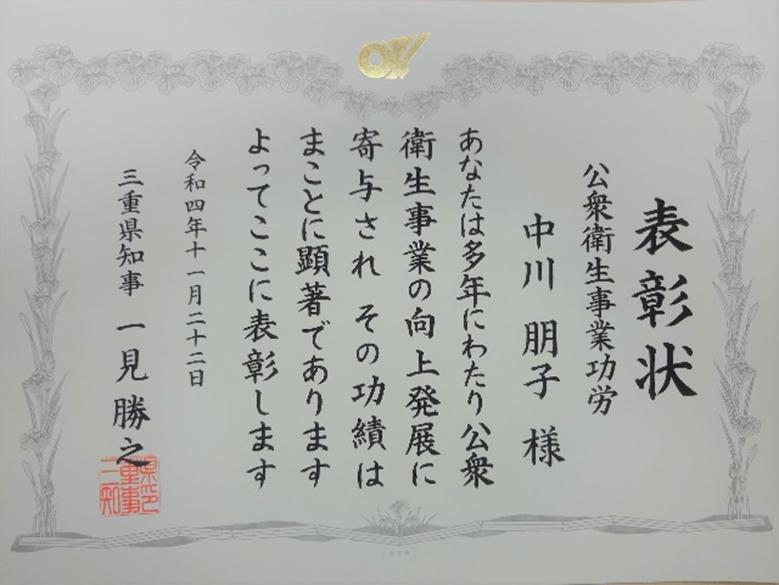 表彰状
公衆衛生事業功労
中川 朋子 様
あなたは多年にわたり公衆
衛生事業の向上発展に
寄与され その功績は
まことに顕著であります
よってここに表彰します
令和四年十一月二十二日
三重県知事 一見勝之